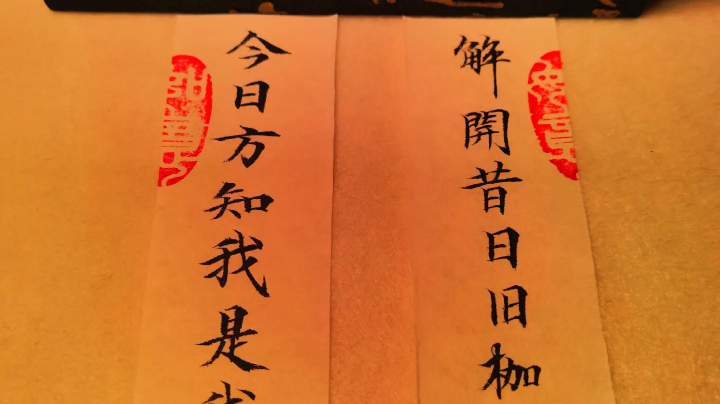 解開昔日旧枷
今日方知我是我